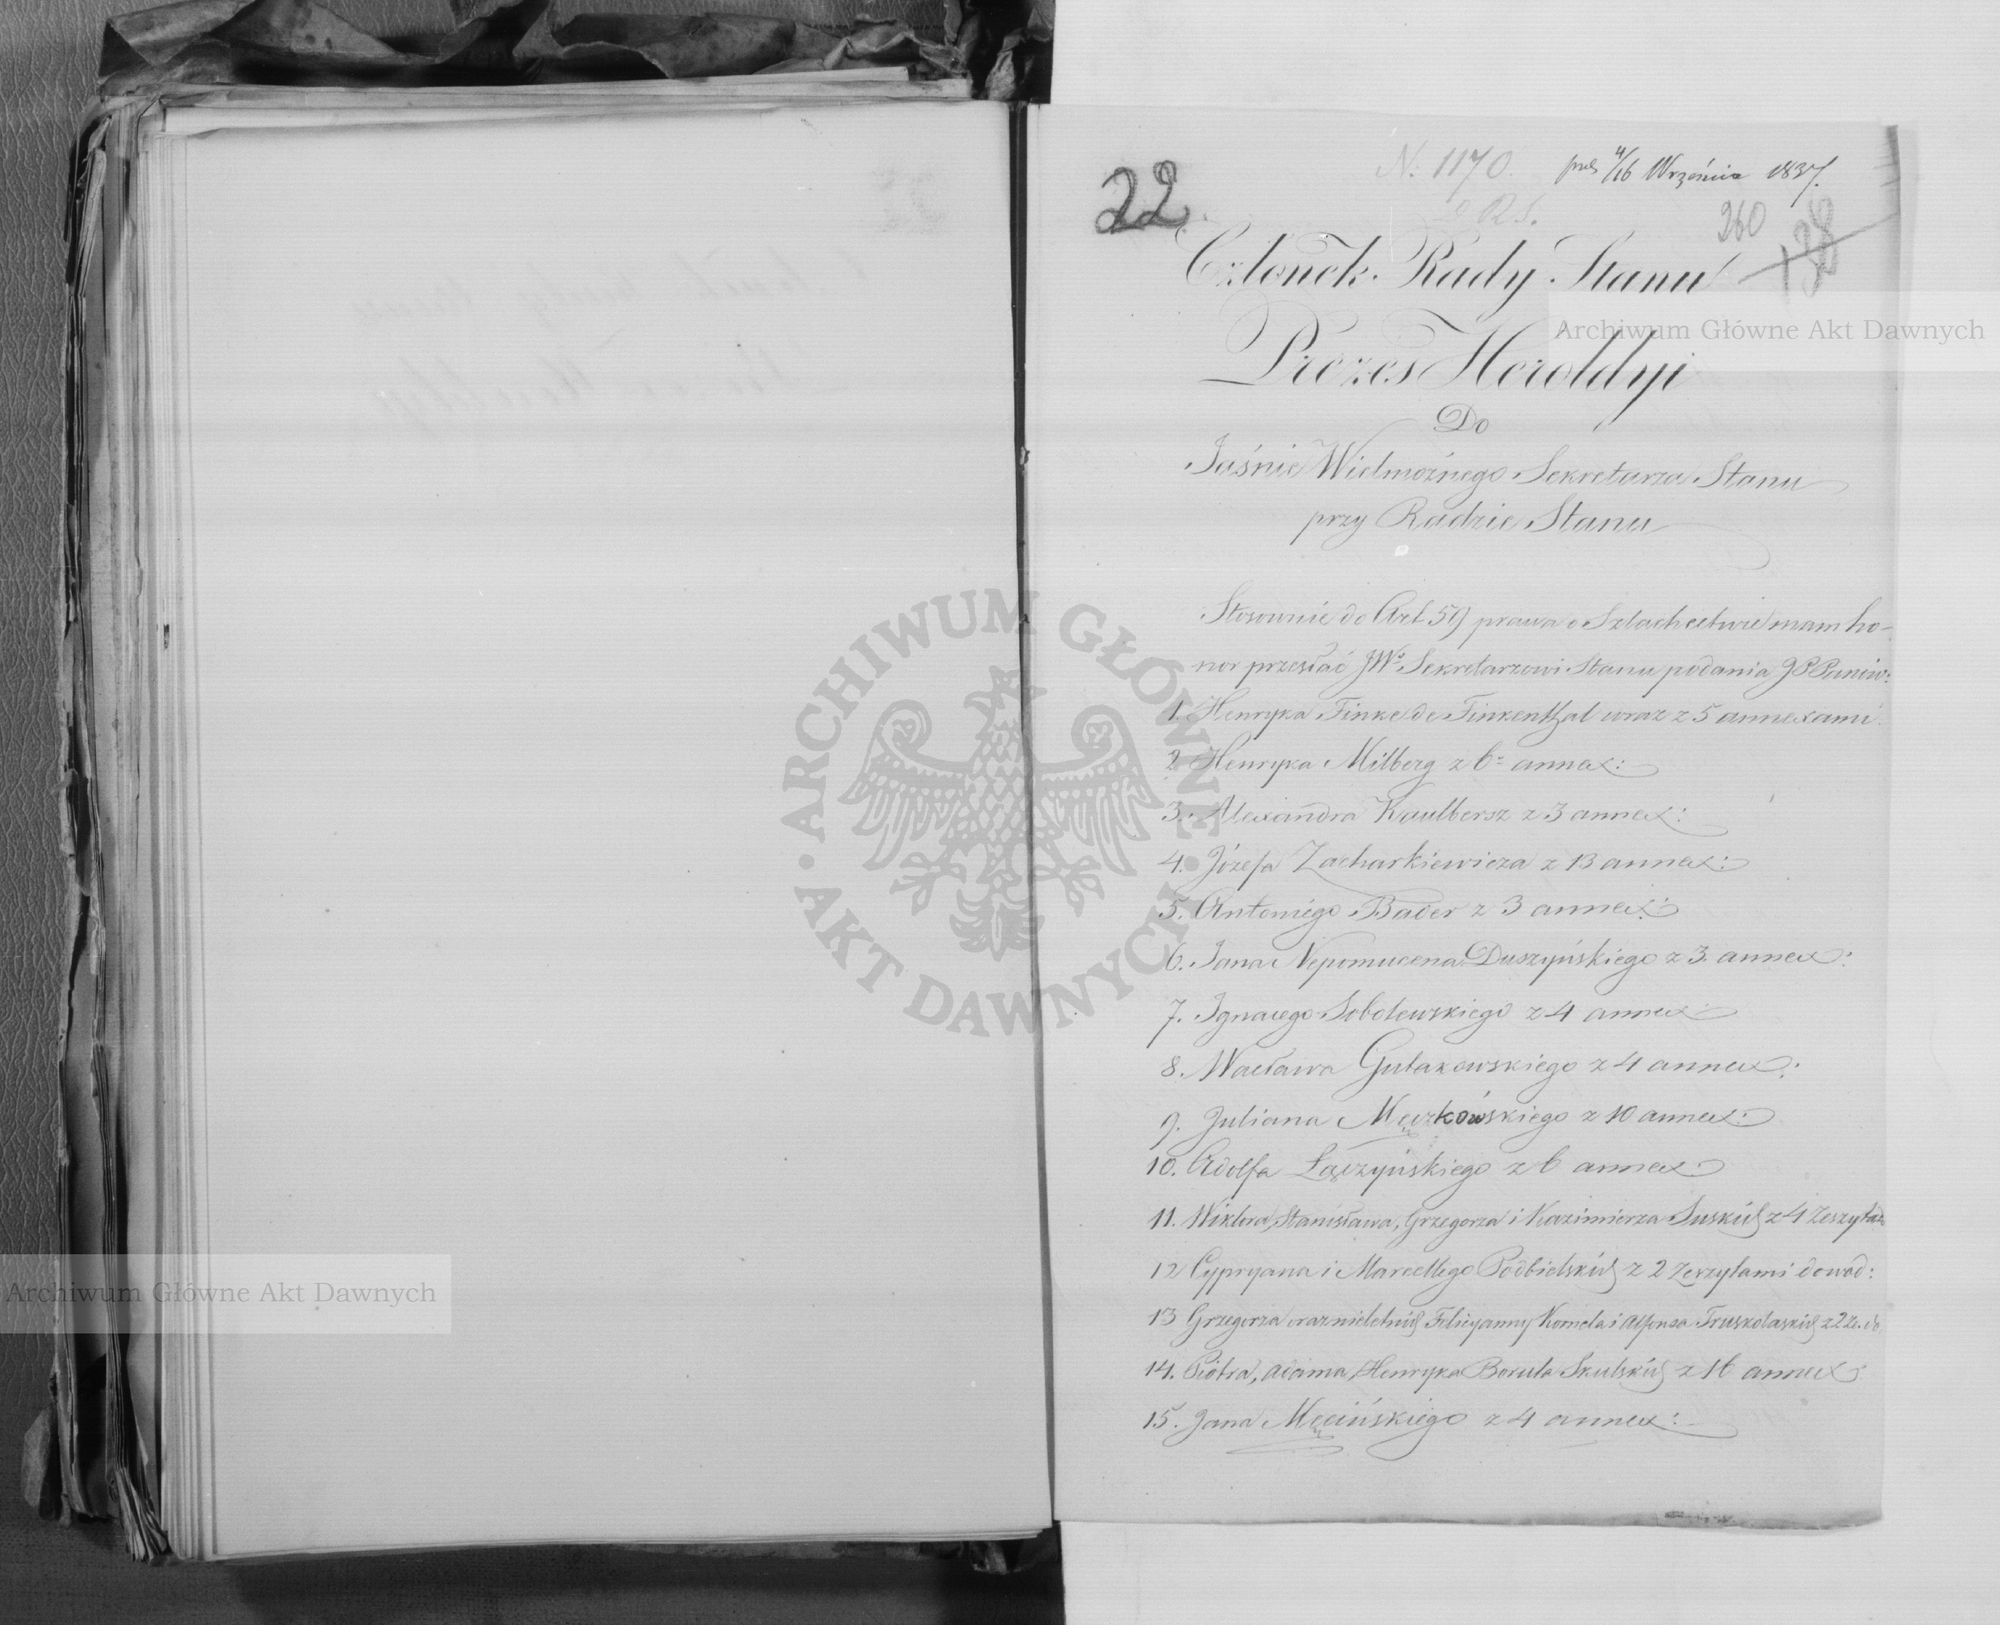 22.
N: 1170.
4/16 Września 1837.
260
138
Członek Rady Stanu
Prezes Heroldyi
Do
Jaśnie Wielmożnego Sekretarza Stanu
przy Radzie Stanu
Stosownie do Art 59 prawa o Szlachectwie mam ho-
nor przesłać JWo Sekretarzowi Stanu podania JPPanów:
1. Henryka Finke de Finkenthal wraz z 5 annexami.
2 Henryka Milberg z 6 annex:
3. Alexandra Kaulbersz z 3 annex:
4. Józefa Zacharkiewicza z 13 annex:
5. Antoniego Bader z 3 annex:
6. Jana Nepomucena Duszyńskiego z 3. annex:
7. Ignacego Sobolewskiego z 4 annex:
8. Wacława Gutakowskiego z 4 annex:
9. Juliana Męczkowskiego z 10 annex:
10. Adolfa Łączyńskiego z 6 annex:
11. Wiktora, Stanisława, Grzegorza i Kazimierza Suskich z 4 Zeszytam
12 Cypryana i Marcellego Podbielskich z 2 Zeszytami dowod:
13 Grzegorza oraz nieletnich Felicyanny Kornela i Alfonsa Truskolaskich z 2 Ze. do
14. Piotra, Adama, Henryka Boruta Skulskich z 16 annex:
15. Jana Męcińskiego z 4 annex:
Archiwum Główne Akt Dawnych
Archiwum Główne Akt Dawnych
ARCHIWUM GŁÓWNE AKT DAWNYCH